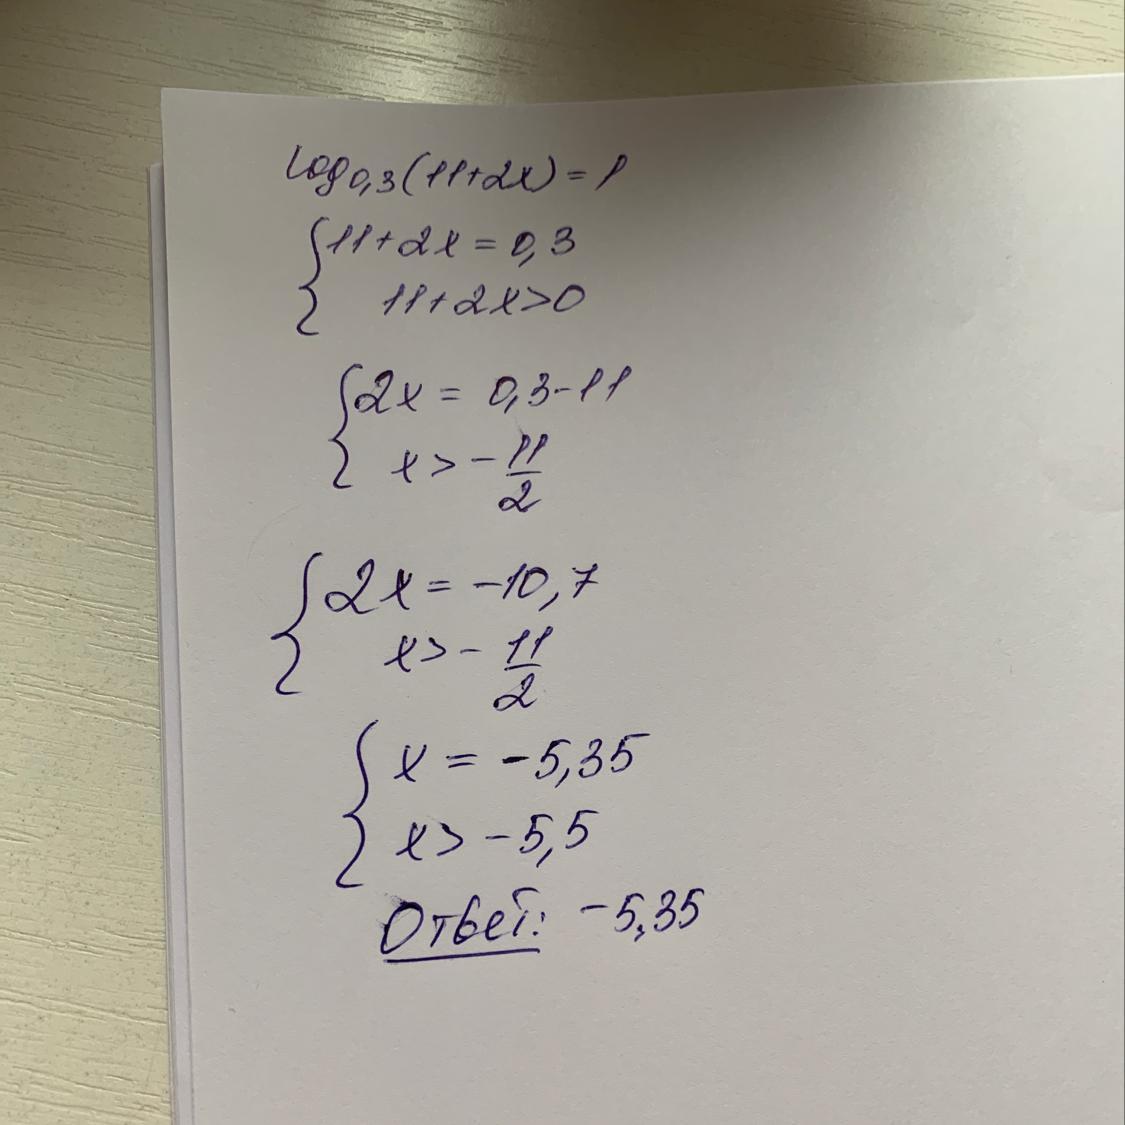 log₀,₃(11+2x) = 1
{11+2x = 0,3
11+2x>0
{2x = 0,3-11
x > - 11/2
{2x = -10,7
x> - 11/2
{x = -5,35
x> -5,5
Ответ: -5,35